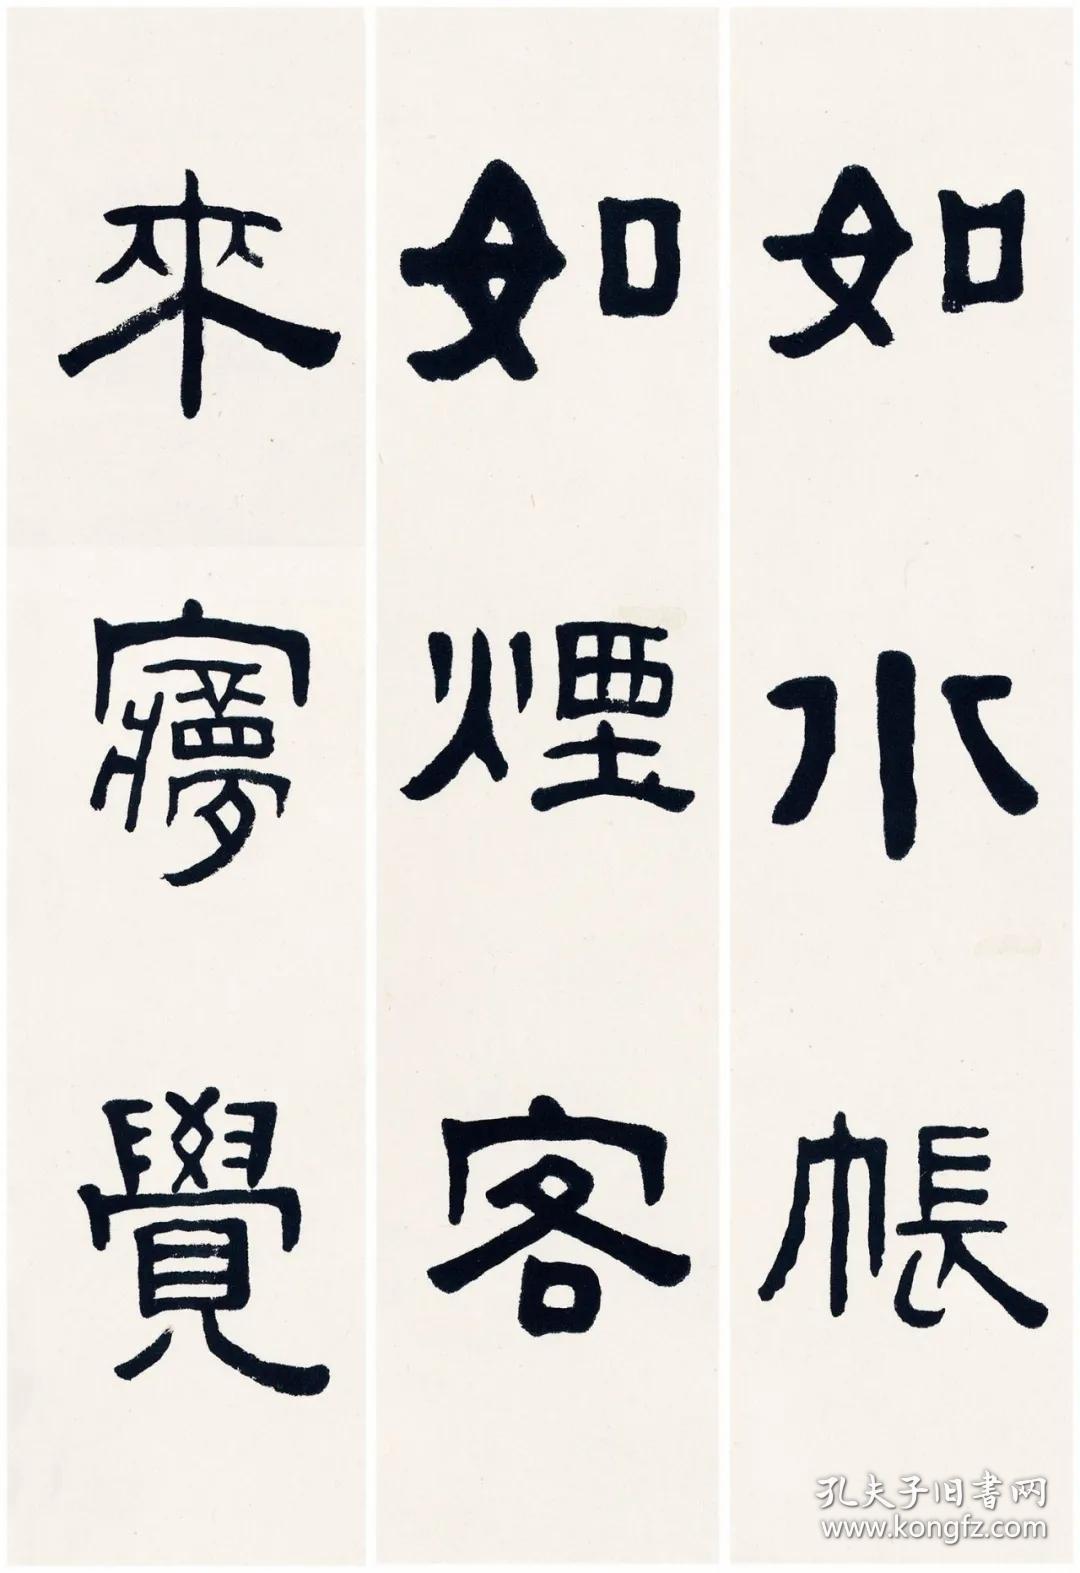 如水帳
如煙客
來㝱覺
孔夫子旧書网
www.kongfz.com